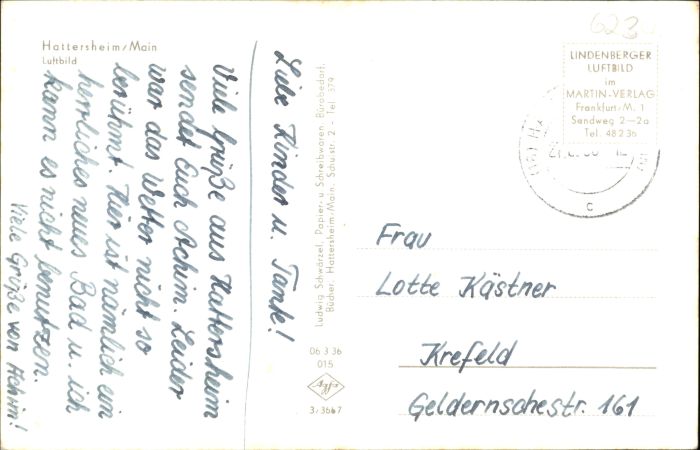 Hattersheim/Main
Luftbild
Liebe Kinder u. Tante!
Viele Grüße aus Hattersheim
sendet Euch Achim. Leider
war das Wetter nicht so
berühmt. Hier ist nämlich ein
herrliches neues Bad u. ich
kann es nicht benutzen.
Viele Grüße von Achim!
Ludwig Schwärzel, Papier- u Schreibwaren, Bürobedarf,
Bücher, Hattersheim/Main, Schulstr. 2 - Tel. 379
06 3 36
015
3/3667
623
LINDENBERGER
LUFTBILD
im
MARTIN-VERLAG
Frankfurt-M. 1
Sandweg 2–2a
Tel. 48236
c
Frau
Lotte Kästner
Krefeld
Geldernschestr. 161